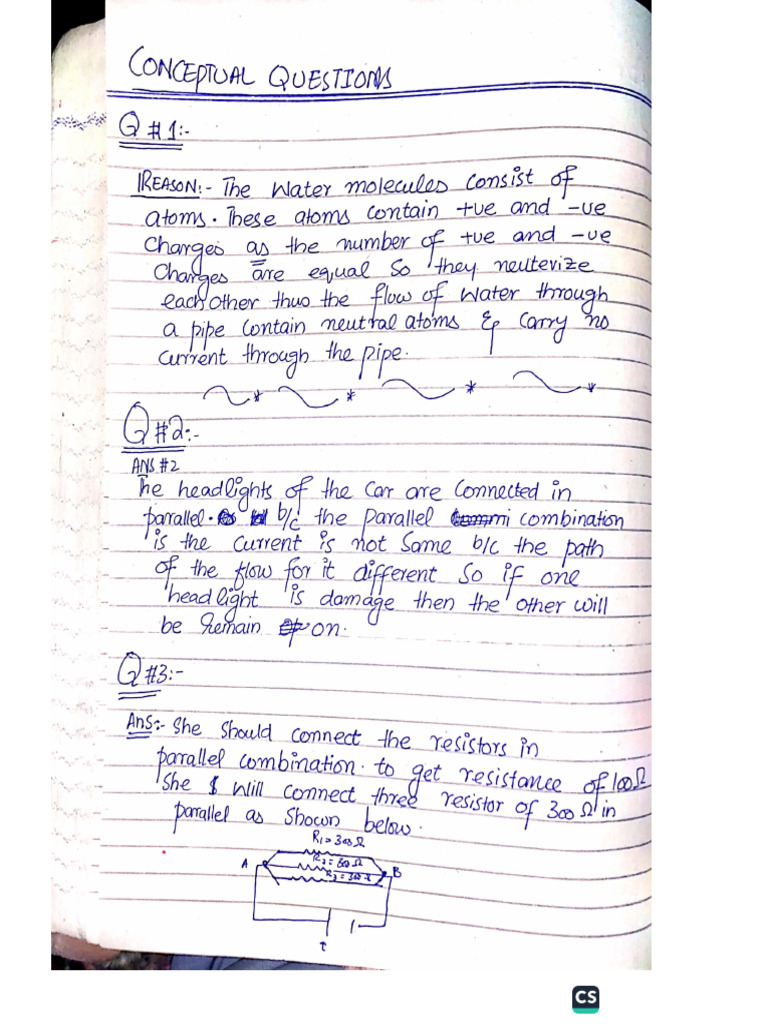 CONCEPTUAL QUESTIONS
Q #1:-
REASON:- The Water molecules consist of
atoms. These atoms contain +ve and -ve
Charges as the number of +ve and -ve
Charges are equal So they neutevize
each Other thus the flow of Water through
a pipe Contain neutral atoms & Carry no
current through the pipe.
Q #2:-
ANS #2
The headlights of the Car are Connected in
parallel. b/c the parallel combination
is the current is not Same b/c the path
of the flow for it different So if one
headlight is damage then the other will
be Remain on.
Q #3:-
Ans:- She Should Connect the resistors in
parallel combination. to get resistance of 100Ω
She Will connect three resistor of 300 Ω in
parallel as Shown below.
R1 = 300 Ω
R2 = 300 Ω
R3 = 300 Ω
A
B
CS